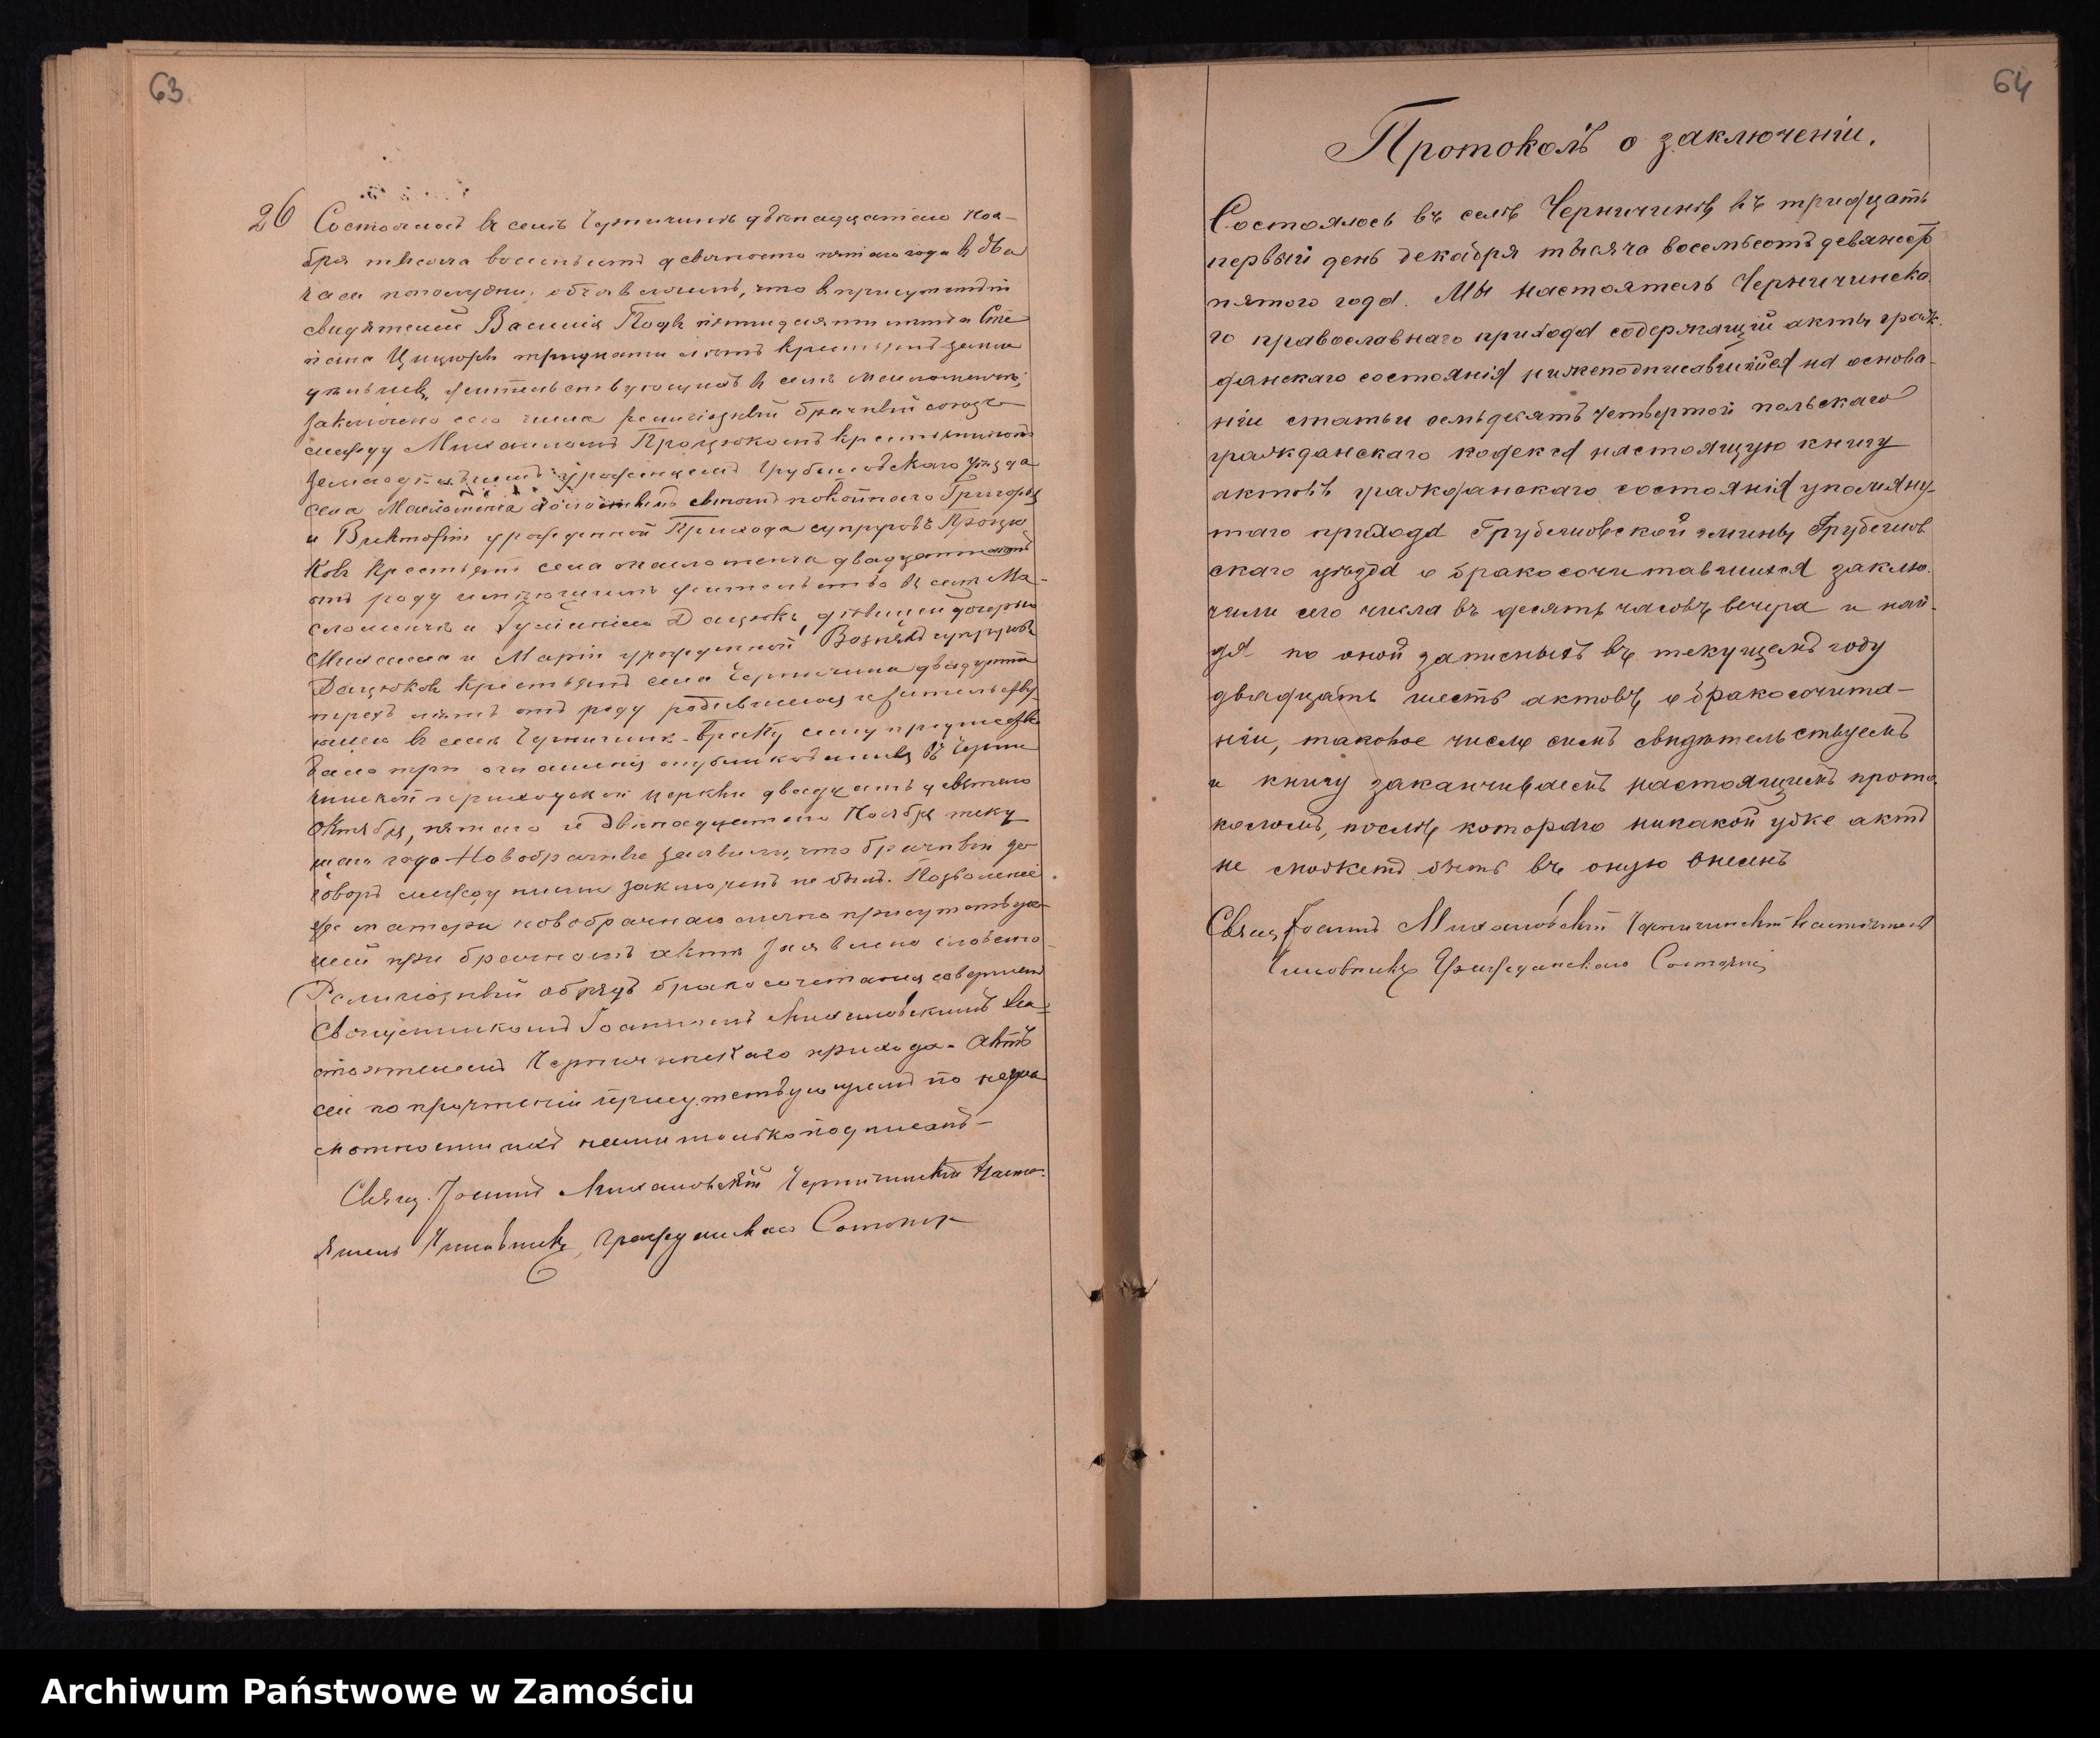 63
26 Состоялось въ селѣ Черничинѣ двѣнадцатаго Ноя-
бря тысяча восемьсотъ девяносто пятаго года въ два
часа пополудни. объявляемъ, что въ присутствіи
свидѣтелей Василія пятидесяти лѣтъ и Сте
пана тридцати лѣтъ крестьянъ земле
дѣльцевъ жительствующихъ въ селѣ
заключенъ сего числа религіозный брачный союзъ
между Михаиломъ Процюкомъ крестьяниномъ
урожденцемъ Грубешовскаго уѣзда
села сыномъ покойнаго Григорія
и Викторіи урожденной супруговъ Процю
ковъ крестьянъ села двадцати
отъ роду имѣющимъ жительство въ селѣ Ма-
сломенчѣ и Дацюкъ, дѣвицею дочерью
Михаила и Маріи урожденной супруговъ
Дацюковъ крестьянъ села Черничина двадцати
трехъ лѣтъ отъ роду родившеюся и жительству
ющею въ селѣ Черничинѣ. Браку сему предшество
вало три оглашенія опубликованныя въ Черни
чинской приходской церкви двадцать девятаго
Октября, пятаго и двѣнадцатаго Ноября теку
щаго года Новобрачные заявили, что брачный до
говоръ между ними заключенъ не былъ. Позволеніе
матери новобрачнаго лично присутствую
щей при брачномъ актѣ заявлено словесно
Религіозный обрядъ бракосочетанія совершенъ
Священникомъ Іоанномъ Михаловскимъ На-
стоятелемъ Черничинскаго прихода. Актъ
сей по прочтеніи присутствующимъ по негра
мотности ихъ нами только подписанъ-
Свящ. Іоаннъ Михаловскій Черничинскій Насто-
ятель Чиновникъ Гражданскаго
64
Протоколъ о заключеніи.
Состоялось въ селѣ Черничинѣ въ тридцать
первый день декабря тысяча восемьсотъ девяносто
пятого года. Мы настоятель Черничинска
го православнаго прихода содержащій акты граж-
данскаго состоянія нижеподписавшійся на основа-
ніи статьи семьдесятъ четвертой польскаго
гражданскаго кодекса настоящую книгу
актовъ гражданскаго состоянія упомяну-
таго прихода Грубешовской гмины Грубешов
скаго уѣзда о бракосочитавшихся заклю-
чили сего числа въ десять часовъ вечера и най-
дя по оной записныхъ въ текущемъ году
двадцать шесть актовъ о бракосочита-
ніи, таковое число симъ свидѣтельствуемъ
и книгу заканчиваемъ настоящимъ прото-
коломъ, послѣ котораго никакой уже актъ
не можетъ быть въ оную внесенъ
Свящ Іоаннъ Михаловскій Черничинскій Настоятель
Чиновникъ Гражданскаго Состоянія
Archiwum Państwowe w Zamościu